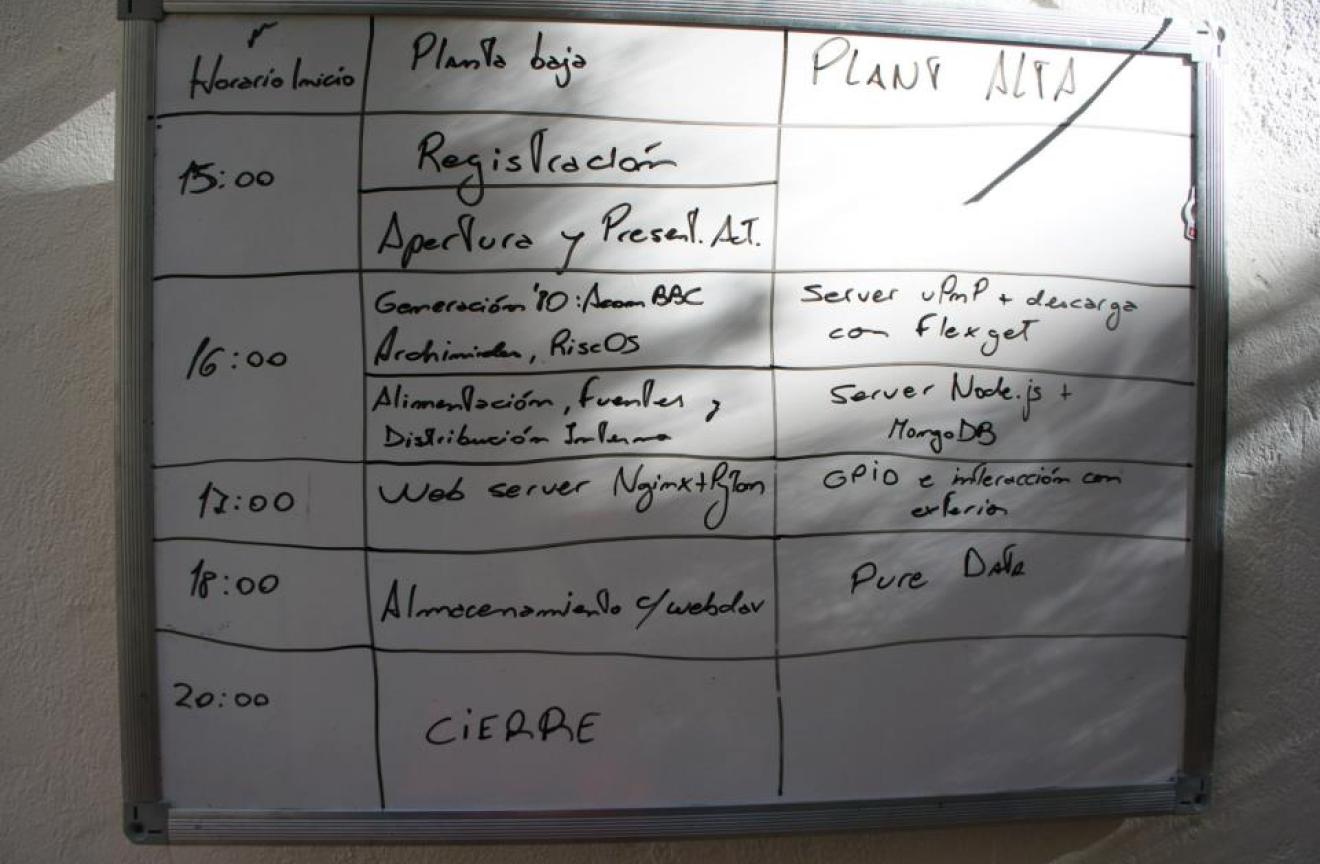 Horario Inicio
Planta baja
PLANT ALTA
15:00
Registración
Apertura y Present. Act.
16:00
Generación '80: Acorn BBC
Archimides, RiscOS
Server uPnP + descarga
con Flexget
Alimentación, fuentes y
Distribución Interna
Server Node.js +
MongoDB
17:00
Web server Nginx+Pyton
GPiO e interacción con
exterior
18:00
Almacenamiento c/webdav
Pure Data
20:00
CiERRE